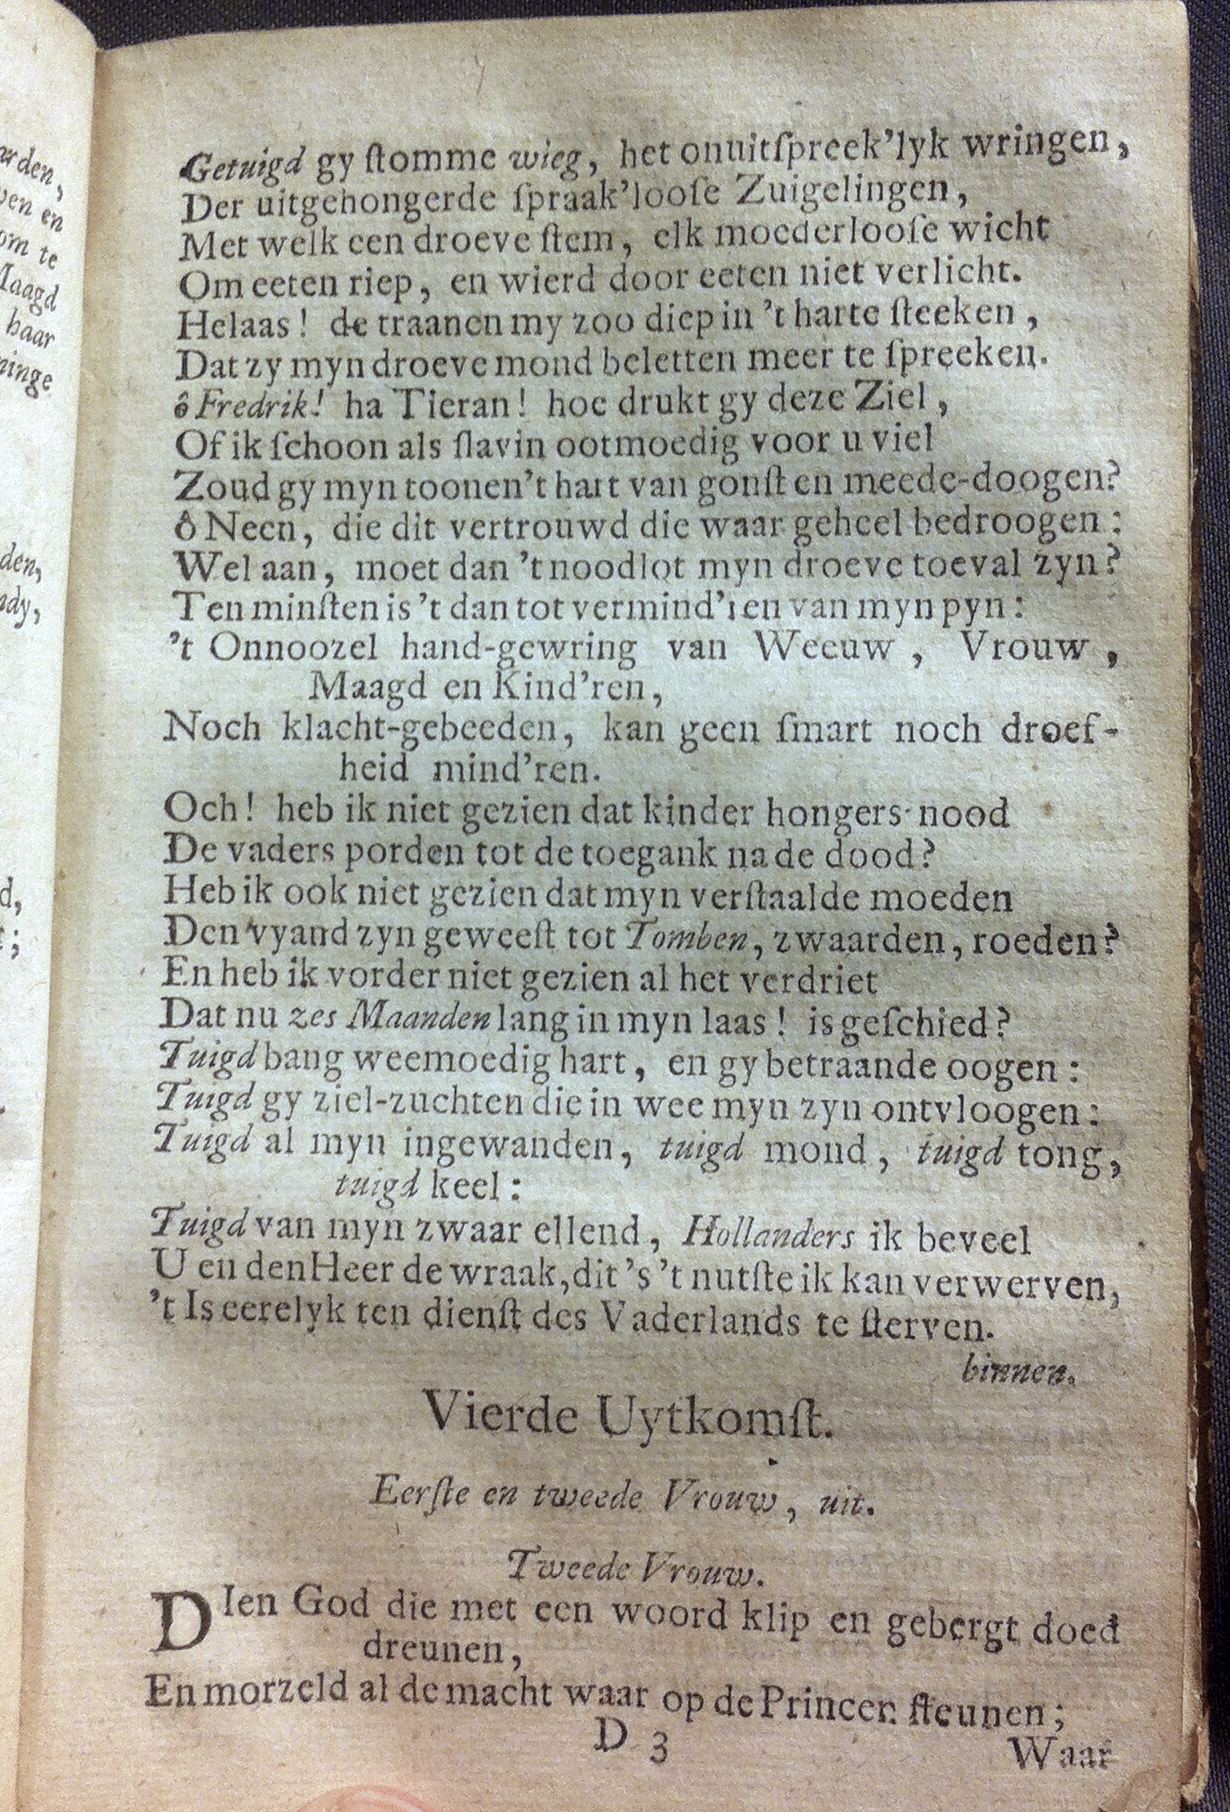 arden,
ven en
om te
Maagd
haar
ninge
den,
ndy,
d,
t;
Getuigd gy ſtomme wieg, het onuitſpreek'lyk wringen,
Der uitgehongerde ſpraak'looſe Zuigelingen,
Met welk een droeve ſtem, elk moederlooſe wicht
Om eeten riep, en wierd door eeten niet verlicht.
Helaas! de traanen my zoo diep in 't harte ſteeken,
Dat zy myn droeve mond beletten meer te ſpreeken.
ô Fredrik! ha Tieran! hoe drukt gy deze Ziel,
Of ik ſchoon als ſlavin ootmoedig voor u viel
Zoud gy myn toonen 't hart van gonſt en meede-doogen?
ô Neen, die dit vertrouwd die waar geheel bedroogen:
Wel aan, moet dan 't noodlot myn droeve toeval zyn?
Ten minſten is 't dan tot vermind'ren van myn pyn:
't Onnoozel hand-gewring van Weeuw, Vrouw,
Maagd en Kind'ren,
Noch klacht-gebeeden, kan geen ſmart noch droef-
heid mind'ren.
Och! heb ik niet gezien dat kinder hongers-nood
De vaders porden tot de toegank na de dood?
Heb ik ook niet gezien dat myn verſtaalde moeden
Den vyand zyn geweeſt tot Tomben, zwaarden, roeden?
En heb ik vorder niet gezien al het verdriet
Dat nu zes Maanden lang in myn laas! is geſchied?
Tuigd bang weemoedig hart, en gy betraande oogen:
Tuigd gy ziel-zuchten die in wee myn zyn ontvloogen:
Tuigd al myn ingewanden, tuigd mond, tuigd tong,
tuigd keel:
Tuigd van myn zwaar ellend, Hollanders ik beveel
U en den Heer de wraak, dit 's 't nutſte ik kan verwerven,
't Is eerelyk ten dienſt des Vaderlands te ſterven.
binnen.
Vierde Uytkomſt.
Eerſte en tweede Vrouw, uit.
Tweede Vrouw.
DIen God die met een woord klip en gebergt doed
dreunen,
En morzeld al de macht waar op de Princen ſteunen;
D 3
Waar